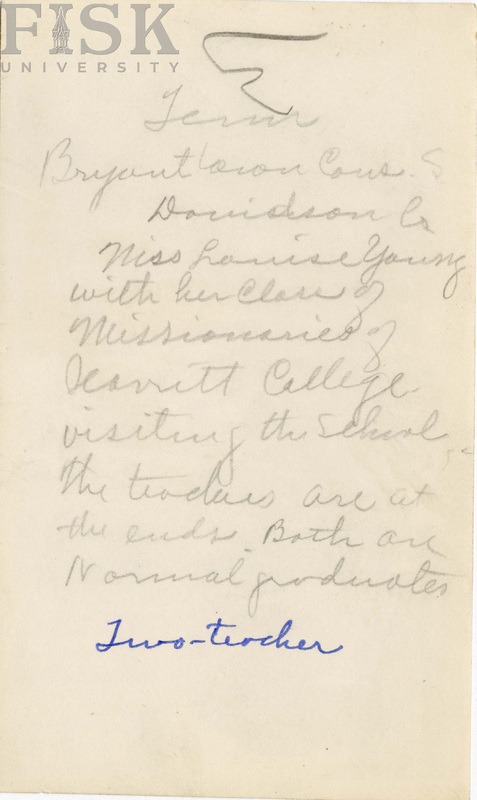 FISK
UNIVERSITY
Tenn
Bryant Town Cons. S
Davidson Co
Miss Louise Young
with her Class of
Missionaries of
Scarritt College
visiting the School
The teachers are at
the ends. Both are
Normal graduates
Two-teacher